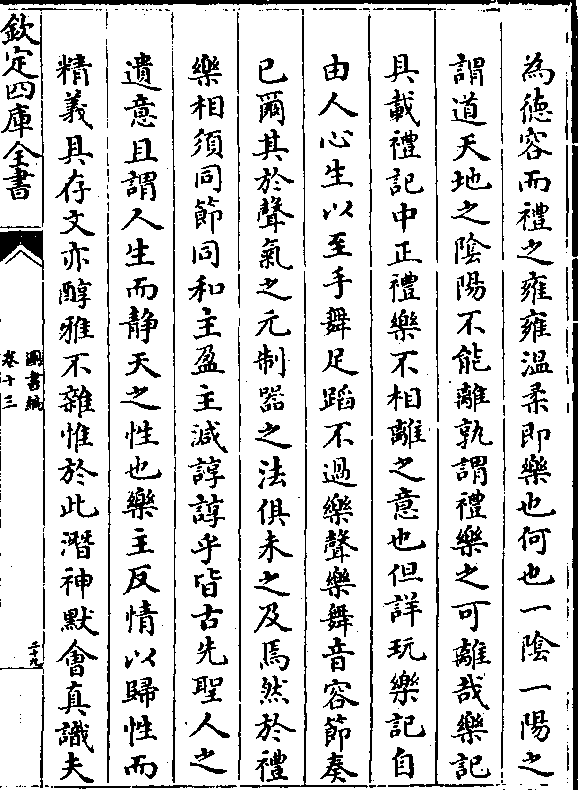 為德容而禮之雍雍溫柔即樂也何也一陰一陽之
謂道天地之陰陽不能離孰謂禮樂之可離哉樂記
具載禮記中正禮樂不相離之意也但詳玩樂記自
由人心生以至手舞足蹈不過樂聲樂舞音容節奏
已爾其於聲氣之元制器之法俱未之及焉然於禮
樂相須同節同和主盈主減諄諄乎皆古先聖人之
遺意且謂人生而静天之性也樂主反情以歸性而
精義具存文亦醇雅不雜惟於此潛神默會真識夫
欽定四庫全書
圖書編
卷十三
二十九